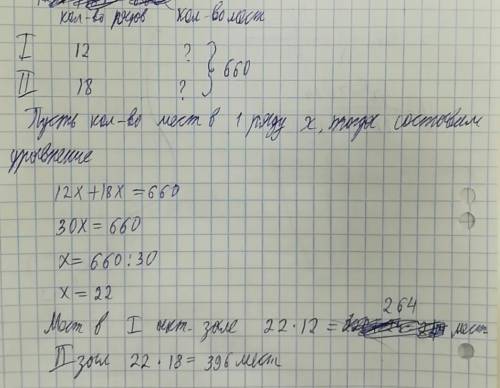 кол-во рядов кол-во мест
I 12 ?
II 18 ? } 660
Пусть кол-во мест в 1 ряду x, тогда составим
уравнение
12x+18x=660
30x=660
x=660:30
x=22
Мест в I акт. зале 22·12=264 мест
II зал 22·18=396 мест